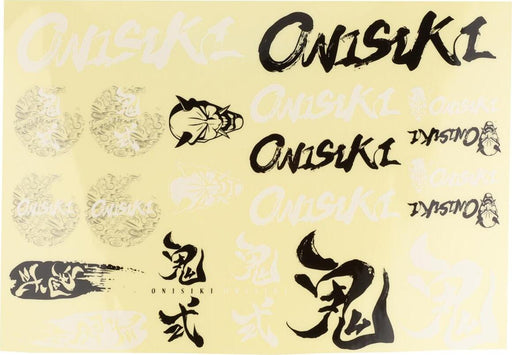 ONISIKI
ONISIKI
ONISIKI
ONISIKI
ONISIKI
ONISIKI
ONISIKI
ONISIKI
ONISIKI
ONISIKI
ONISIKI
ONISIKI
鬼
弐
ONISIKI
鬼